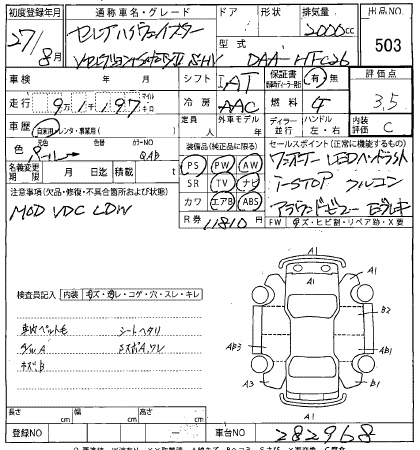 初度登録年月 通称車名・グレード ドア 形状 排気量 出品NO
27/8月 セレナ ハイウェイスター 2000cc 503
型式 DAA-HFC26
車検 年 月 シフト IAT 保証書 有・無 評価点
走行 9万1千197 マイル キロ 冷房 AAC 燃料 3.5
車歴 自家用・レンタ・事業用( ) 定員 人 外車モデル 年 ディーラー 並行 ハンドル 左・右 内装評価 C
色 元色 パール 色替 カラーNO QAB 装備品(純正品に限る) セールスポイント(正常に機能するもの)
名義変更期限 月 日迄 積載 t PS PW AW ワンオーナー LEDヘッドライト
注意事項(欠品・修復・不具合箇所および状態) SR TV ナビ I-STOP フルコン
MOD VDC LDW カワ エアB ABS アラウンドビュー Eブレーキ
R券 11810 FW キズ・ヒビ割・リペア跡・X要
検査員記入 内装 キズ・汚レ・コゲ・穴・スレ・キレ
車内ペット毛 シートヘタリ
キズ.B
A1
A1
A1
B2
AB3
A3
B1
A1
長さ cm 幅 cm 高さ cm
登録NO 車台NO 282968